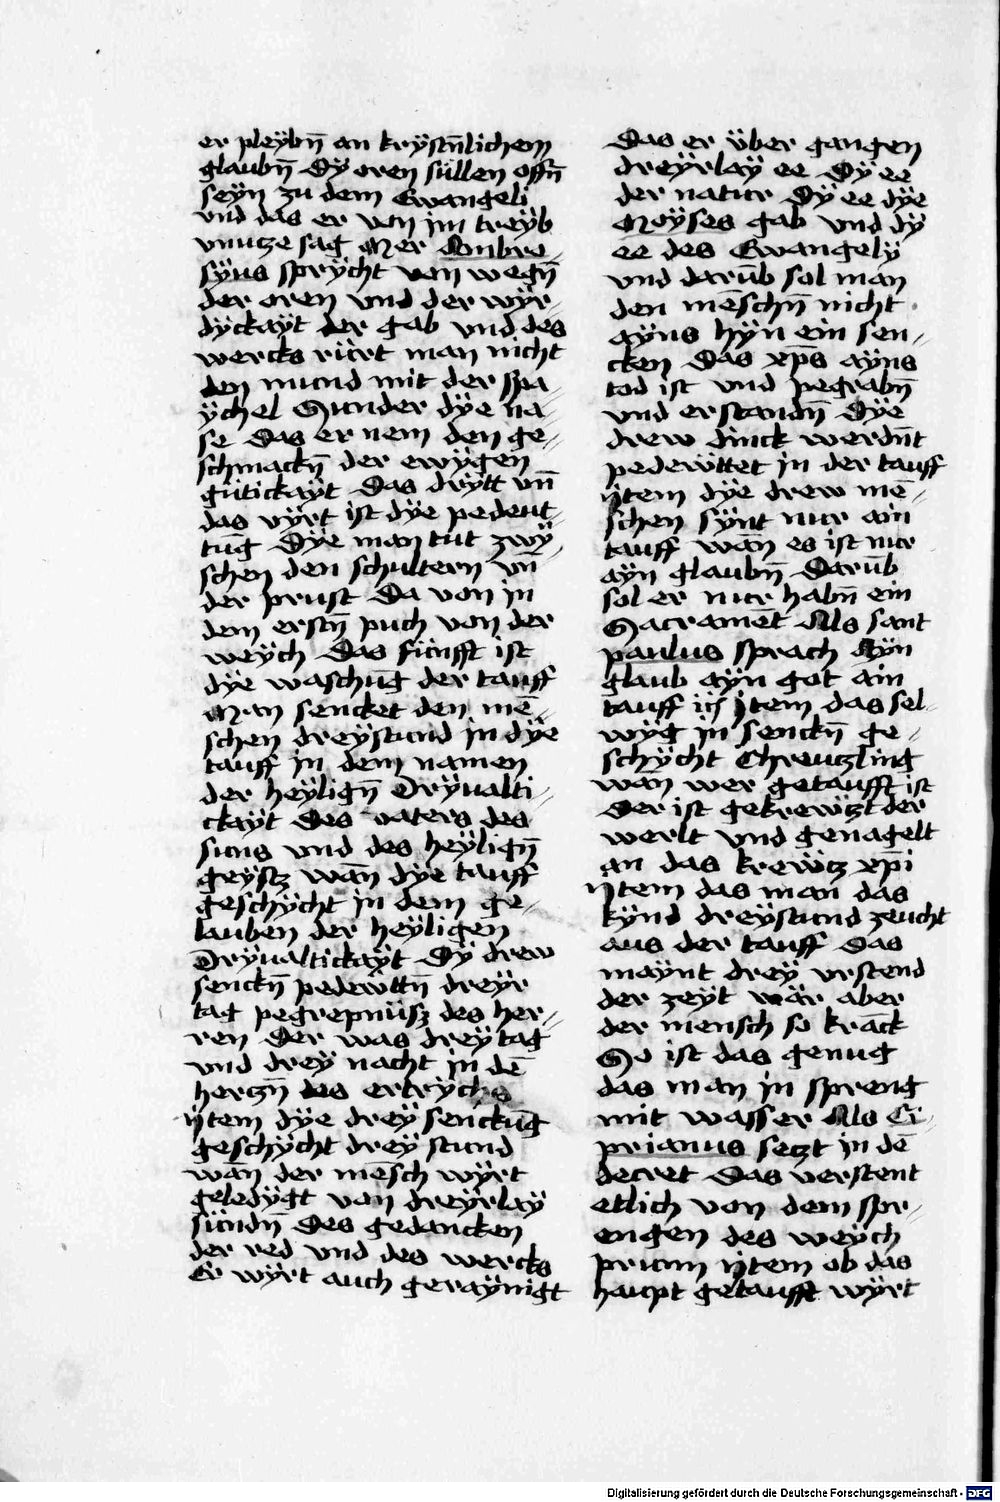 er pleybn̄ an krÿstn̄lichem
glaubn̄ Dÿ oren süllen offn̄
seÿn zu dem Ewangeli
vnd das er von im treÿb
vnutze sag Mer Ambro⸗
sÿus sprÿcht von wegn̄
der oren vnd der wÿr⸗
dÿckaÿt der gab vnd des
wercks rürt man nicht
den mund mit der spa⸗
ÿchel Sunder dÿe na⸗
se Das er nem den ge⸗
schmackn̄ der ewÿgen
gütickaÿt Das drÿtt vn̄
das vÿrt ist dÿe pedeut⸗
tūg Dÿe man tut zwÿ⸗
schen den schultern vn̄
der prust Da von in
dem erstn̄ puch von der
weÿch Das fünfft ist
dÿe waschūg der tauff
Man sencket den mē⸗
schen dreÿstund in dÿe
tauff in dem namen
der heÿlign̄ Drÿualti⸗
ckaÿt des vaters des
suns vnd des heÿlign̄
geÿstz wān dÿe tauff
geschÿcht in dem ge⸗
lauben der heÿligen
Drÿualtickaÿt Dÿ drew
senckn̄ pedewttn̄ dreÿr
tag pegrepnüsz des her⸗
ren Der was dreÿ tag
vnd dreÿ nacht in dē
hertzn̄ des ertrÿchs
ÿtem dÿe dreÿ senckūg
geschÿcht dreÿ stund
wān der mēsch wÿrt
geledÿgt von dreÿrlaÿ
sündn̄ Des gedancken
der red vnd des wercks
Er wÿrt auch geraÿnigt
Das er über gangen
dreÿrlaÿ ee Dÿ ee
der natur Dÿ ee dÿe
Moÿses gab vnd dÿ
ee des Ewangelÿ
vnd darūb sol man
den mēschn̄ nicht
aÿns hÿn ein sen⸗
cken Das xp̄s aÿns
tod ist vnd pegrabn̄
vnd erstandn̄ Dÿe
drew dinck werdn̄t
pedewttet in der tauff
ÿtem dÿe drew mē⸗
schen sÿnt nur ain
tauff wān es ist nur
aÿn glaubn̄ Darūb
sol er nur habn̄ ein
Sacramēt Als sant
paulus sprach Aÿn
glaub aÿn got ain
tauff ıc̄ ÿtem das sel⸗
wÿg in senckn̄ ge⸗
schÿcht Chreutzling
wān wer getaufft ist
Der ist gekrewtzt der
werlt vnd genagelt
an das krewtz xp̄i
ÿtem das man das
kÿnd dreÿstund zeucht
aus der tauff Das
maÿnt dreÿ vrstend
der zeÿt wär aber
der mensch so krāck
So ist das genug
das man in spreng
mit wasser Als Ci⸗
prianus setzt in dē
decret Das verstent
etlich von dem spr⸗
engen des weÿch
prunn ÿtem ob das
haupt getaufft wÿrt
Digitalisierung gefördert durch die Deutsche Forschungsgemeinschaft - DFG